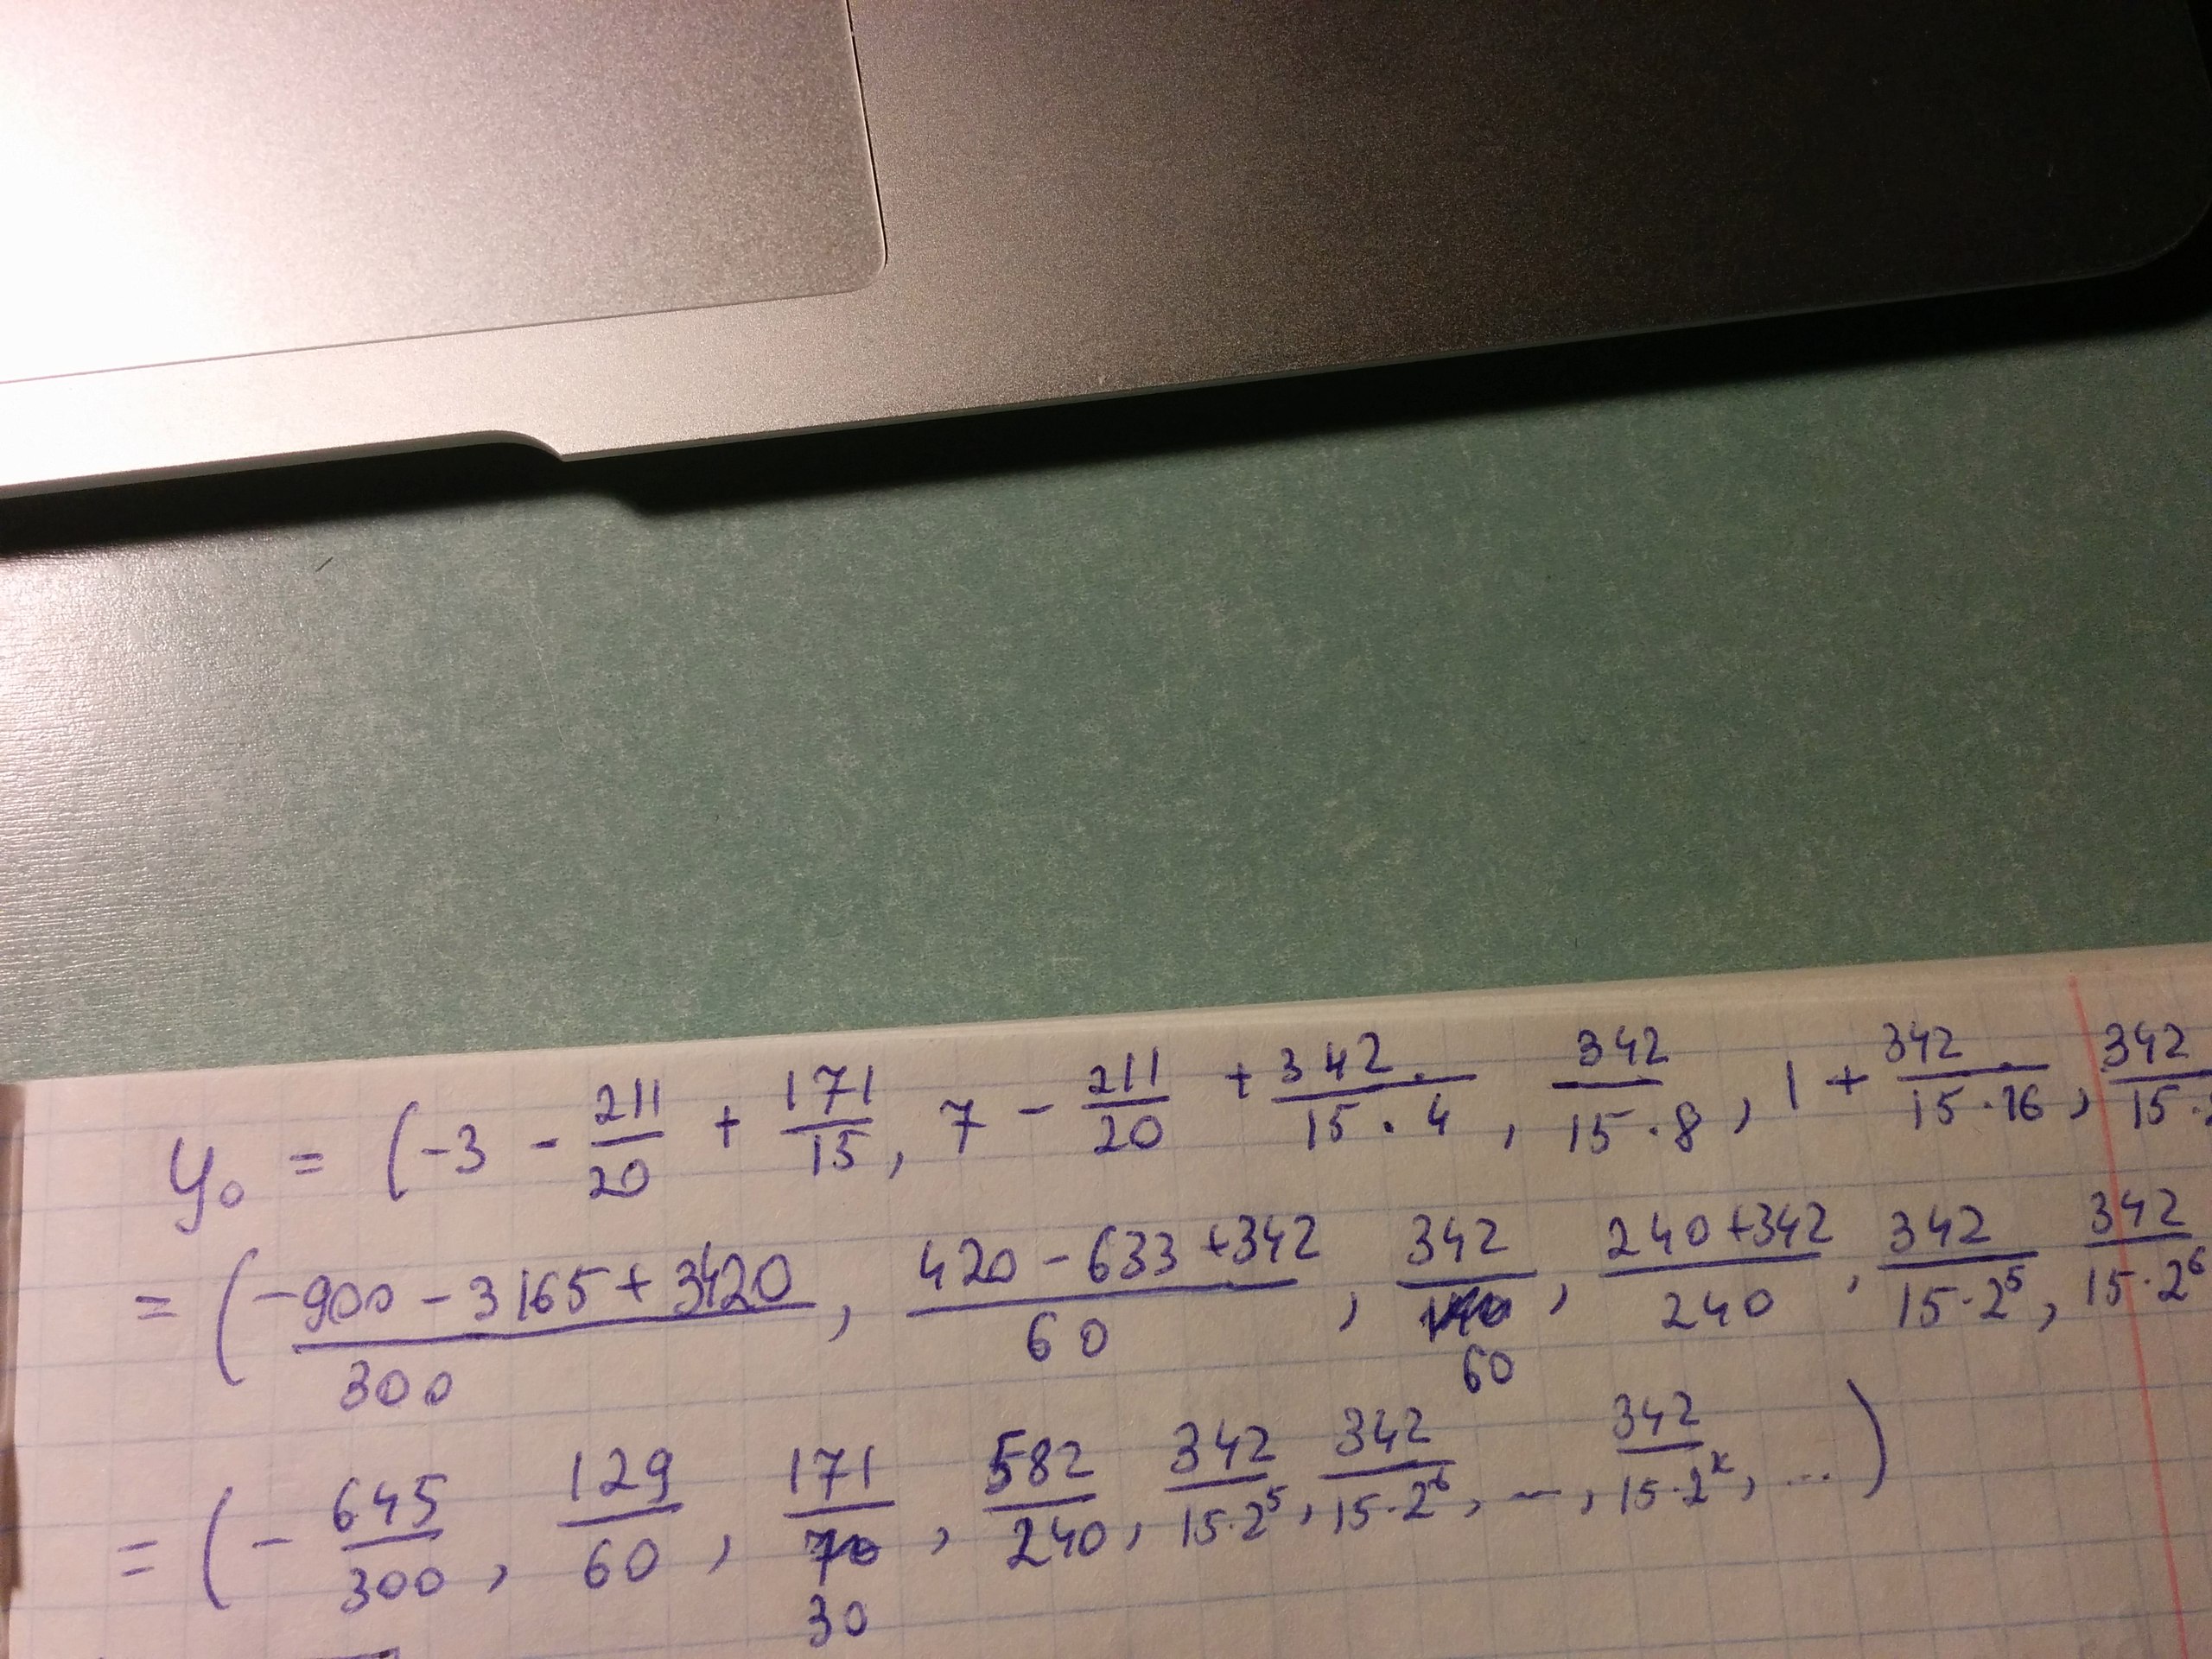 y₀ = (-3 - 211/20 + 171/15, 7 - 211/20 + 342/(15·4), 342/(15·8), 1 + 342/(15·16), 342/(15·
= ((-900 - 3165 + 3420)/300, (420 - 633 + 342)/60, 342/60, (240+342)/240, 342/(15·2⁵), 342/(15·2⁶)
= (-645/300, 129/60, 171/30, 582/240, 342/(15·2⁵), 342/(15·2⁶), ..., 342/(15·2ᵏ), ...)